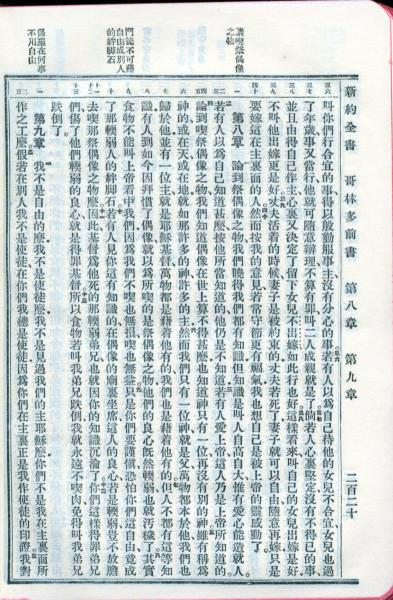 新約全書 哥林多前書 第八章 第九章 二百二十
叫你們行合宜的事得以殷勤服事主沒有分心的事若有人以爲自己待他的女兒不合宜女兒也過
了年歲事又當行他就可隨意辦理不算有罪叫二人成親就是了倘若人心裏堅定沒有不得已的事
並且由得自己作主心裏又決定了留下女兒不出嫁如此行也好這樣看來叫自己的女兒出嫁是好
不叫他出嫁更是好丈夫活着的時候妻子是被約束的丈夫若死了妻子就可以自由隨意再嫁只是
要嫁這在主裏面的人然而按我的意見若常守節更有福氣我也想自己是被上帝的靈感動了
論喫祭偶像
之物
第八章 論到祭偶像之物我們曉得我們都有知識但知識是叫人自高自大惟有愛心能造就人
若有人以爲自己知道甚麼按他所當知道的他仍是不知道若有人愛上帝這人乃是上帝所知道的
論到喫祭偶像之物我們知道偶像在世上算不得甚麼也知道神只有一位再沒有別的神雖有稱爲
神的或在天或在地就如那許多的神許多的主然而我們只有一位神就是父萬物都本於他我們也
歸於他並有一位主就是耶穌基督萬物都是藉着他有的我們也是藉着他有的但人不都有這等知
識有人到如今因拜慣了偶像就以爲所喫的是祭偶像之物他們的良心既然輭弱也就汚穢了其實
門徒不可藉
自由成別人
的絆脚石
食物不能叫上帝看中我們因爲我們不喫也無損喫也無益只是你們要謹愼恐怕你們這自由竟成
了那輭弱人的絆脚石若有人見你這有知識的在偶像的廟裏坐席這人的良心若是輭弱豈不放膽
去喫那祭偶像之物麼因此基督爲他死的那輭弱弟兄也就因你的知識沉淪了你們這樣得罪弟兄
們傷了他們輭弱的良心就是得罪基督所以食物若叫我弟兄跌倒我就永遠不喫肉免得叫我弟兄
跌倒了
保羅在何事
不用自由
第九章 我不是自由的麼我不是使徒麼我不是見過我們的主耶穌麼你們不是我在主裏面所
作之工麼假若在別人我不是使徒在你們我總是使徒因爲你們在主裏正是我作使徒的印證我對